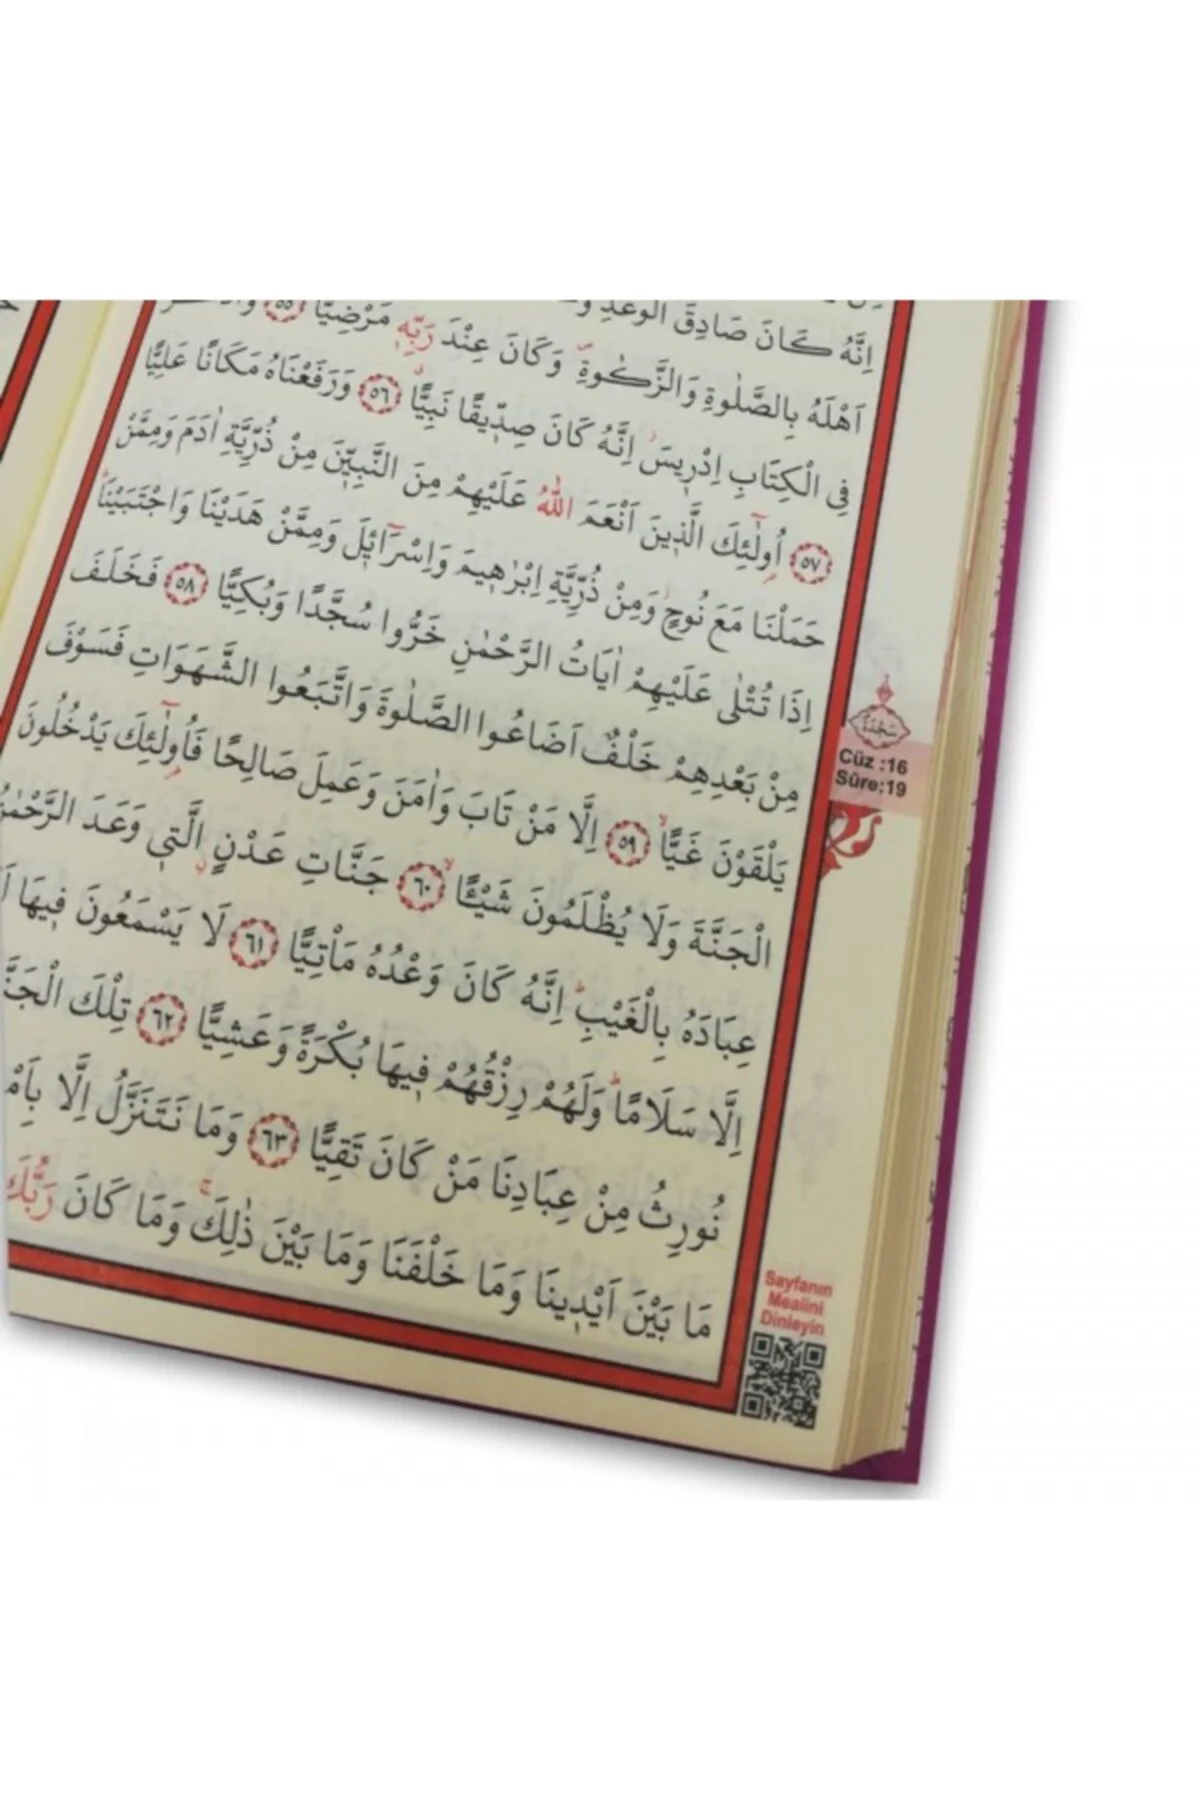 اِنَّهُ كَانَ صَادِقَ الْوَعْدِ
اَهْلَهُ بِالصَّلٰوةِ وَالزَّكٰوةِۖ وَكَانَ عِنْدَ رَبِّه۪ مَرْضِيًّا ٥٥
فِي الْكِتَابِ اِدْر۪يسَۘ اِنَّهُ كَانَ صِدّ۪يقًا نَبِيًّاۙ ٥٦ وَرَفَعْنَاهُ مَكَانًا عَلِيًّا
٥٧ اُو۬لٰٓئِكَ الَّذ۪ينَ اَنْعَمَ اللّٰهُ عَلَيْهِمْ مِنَ النَّبِيّ۪نَ مِنْ ذُرِّيَّةِ اٰدَمَ وَمِمَّنْ
حَمَلْنَا مَعَ نُوحٍۘ وَمِنْ ذُرِّيَّةِ اِبْرٰه۪يمَ وَاِسْرَٓائ۪لَ وَمِمَّنْ هَدَيْنَا وَاجْتَبَيْنَاۜ
اِذَا تُتْلٰى عَلَيْهِمْ اٰيَاتُ الرَّحْمٰنِ خَرُّوا سُجَّدًا وَبُكِيًّا ٥٨ فَخَلَفَ
مِنْ بَعْدِهِمْ خَلْفٌ اَضَاعُوا الصَّلٰوةَ وَاتَّبَعُوا الشَّهَوَاتِ فَسَوْفَ
يَلْقَوْنَ غَيًّاۙ ٥٩ اِلَّا مَنْ تَابَ وَاٰمَنَ وَعَمِلَ صَالِحًا فَاُو۬لٰٓئِكَ يَدْخُلُونَ
الْجَنَّةَ وَلَا يُظْلَمُونَ شَيْـًٔاۙ ٦٠ جَنَّاتِ عَدْنٍۨ الَّت۪ي وَعَدَ الرَّحْمٰنُ
عِبَادَهُ بِالْغَيْبِۜ اِنَّهُ كَانَ وَعْدُهُ مَأْتِيًّا ٦١ لَا يَسْمَعُونَ ف۪يهَا
اِلَّا سَلَامًاۜ وَلَهُمْ رِزْقُهُمْ ف۪يهَا بُكْرَةً وَعَشِيًّا ٦٢ تِلْكَ
نُورِثُ مِنْ عِبَادِنَا مَنْ كَانَ تَقِيًّا ٦٣ وَمَا نَتَنَزَّلُ اِلَّا
مَا بَيْنَ اَيْد۪ينَا وَمَا خَلْفَنَا وَمَا بَيْنَ ذٰلِكَۚ وَمَا كَانَ رَبُّكَ
سَجْدَة
Cüz :16
Sûre:19
Sayfanın
Mealini
Dinleyin